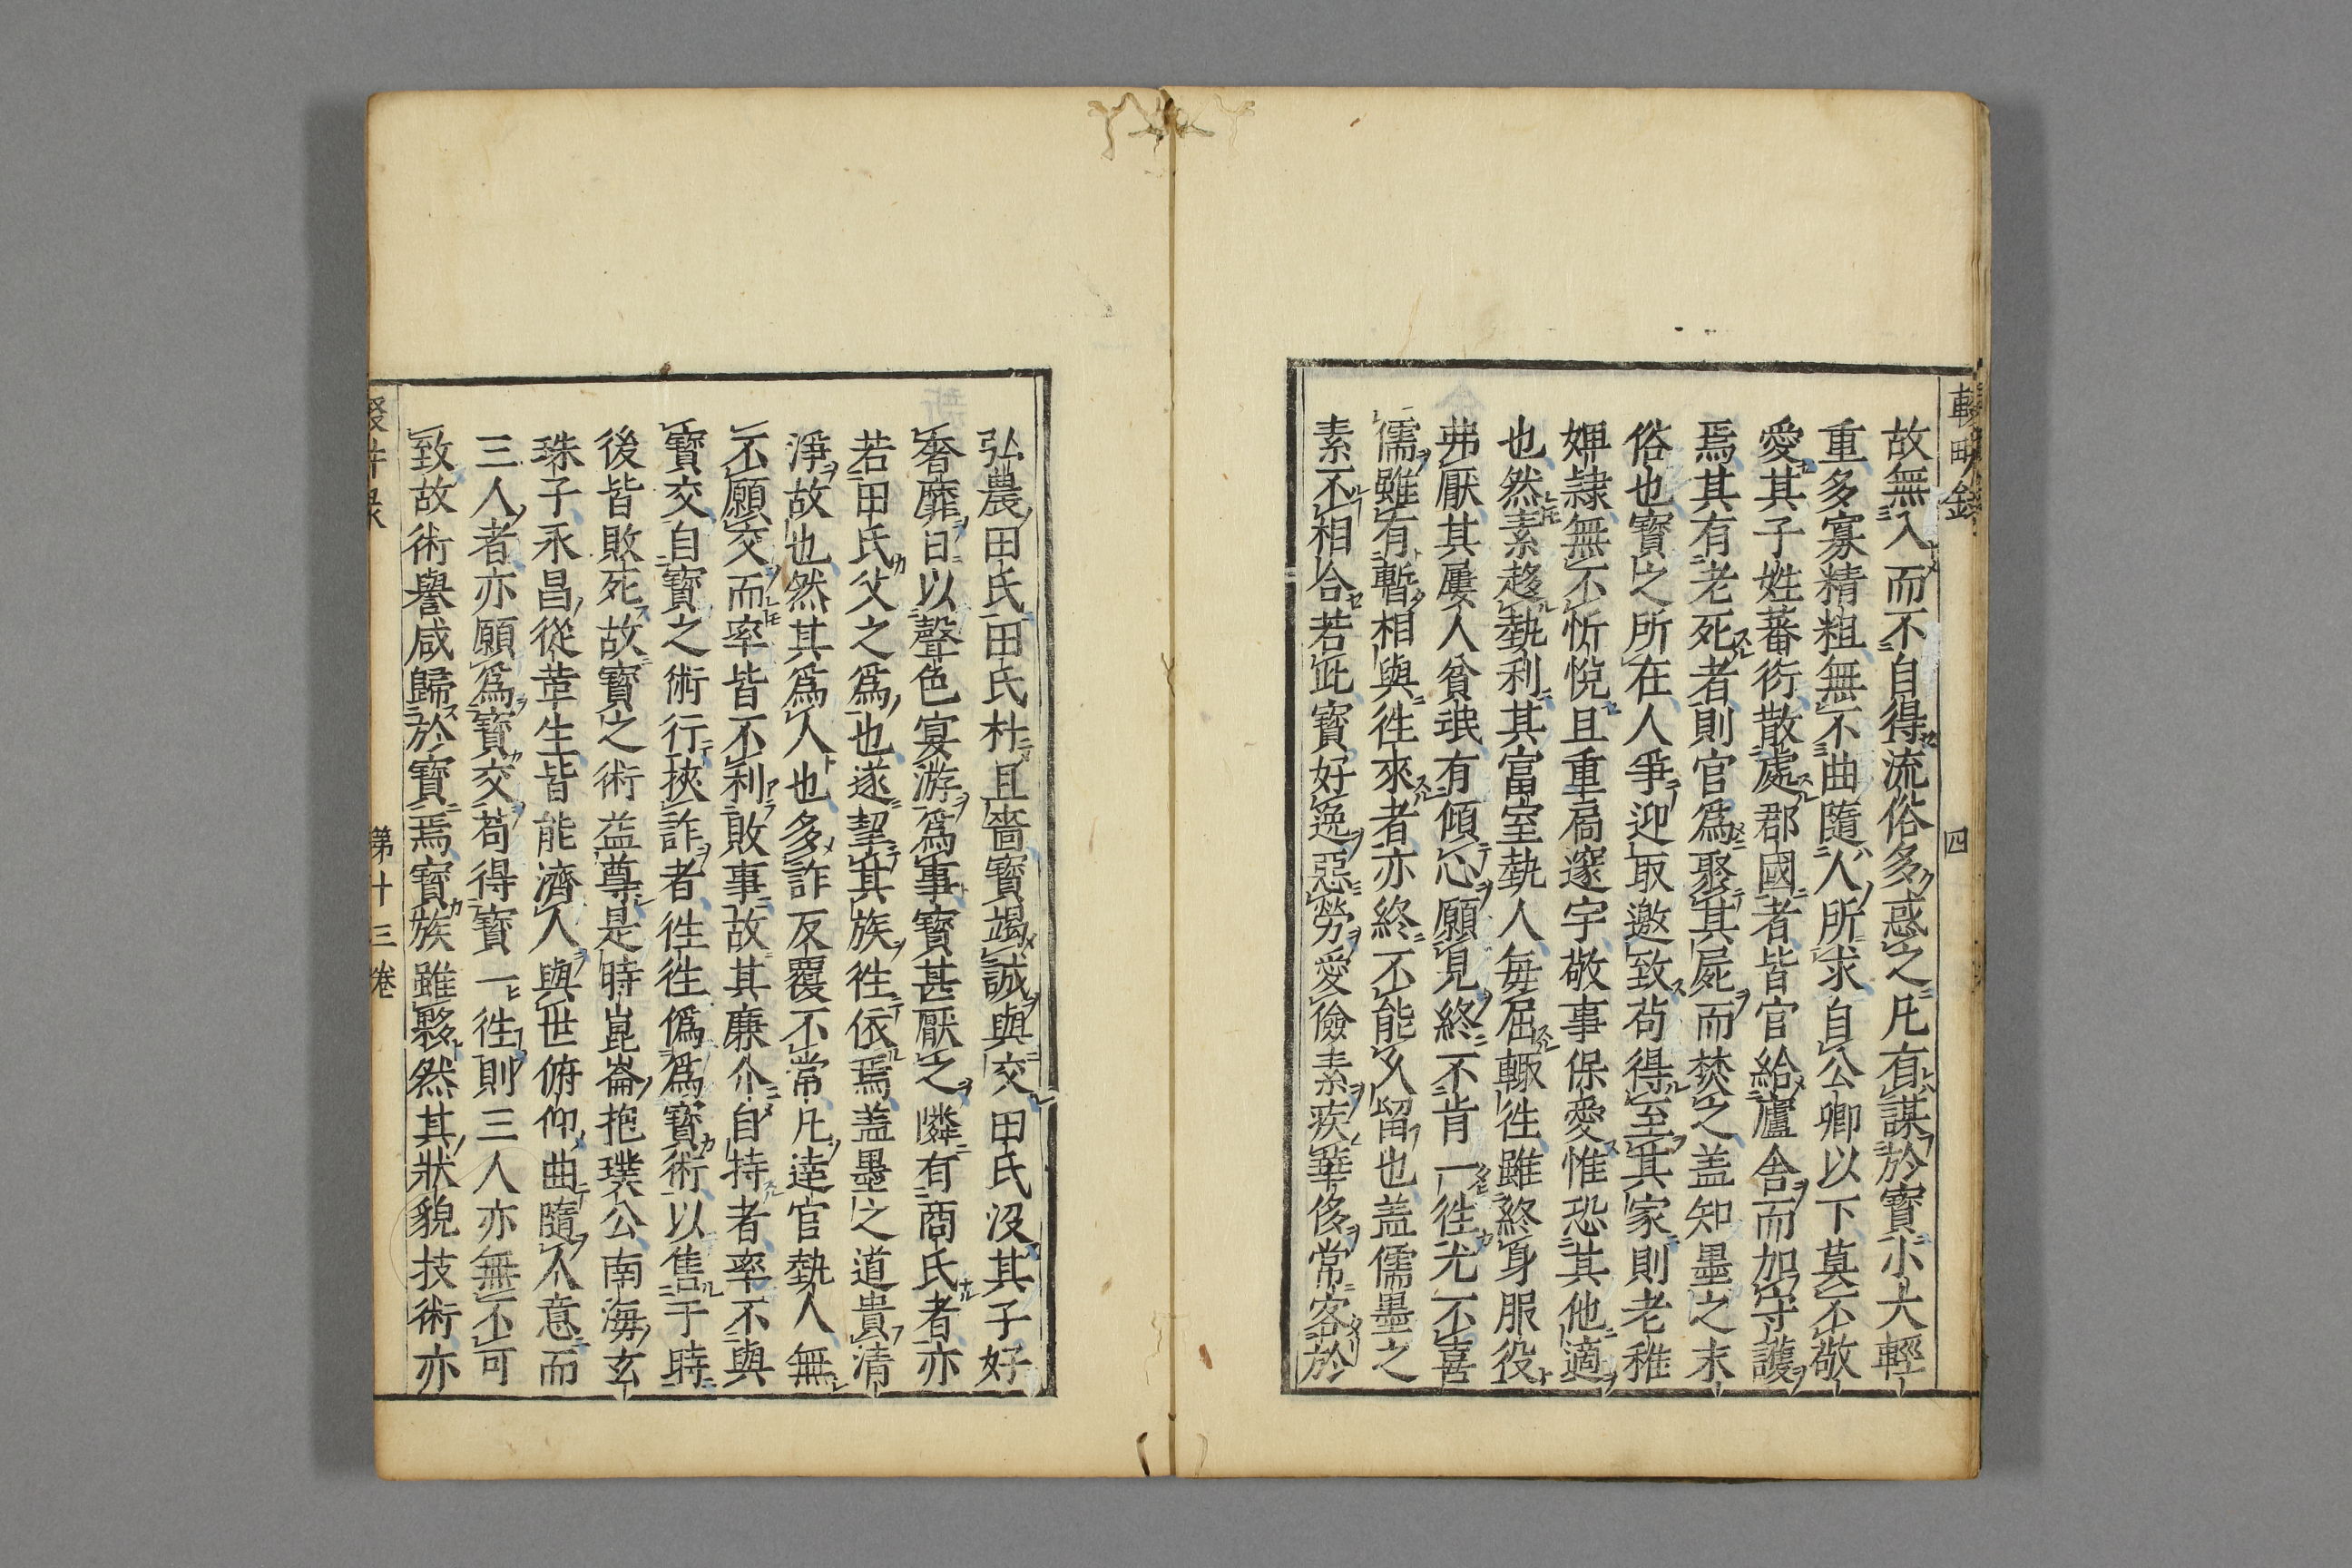 輟畊錄
四
故無入而不自得流俗多惑之凡有謀於寶小大輕
重多寡精粗無不曲隨人所求自公卿以下莫不敬
愛其子姓蕃衍散處郡國者皆官給廬舍而加守護
焉其有老死者則官爲聚其屍而焚之盖知墨之末
俗也寶之所在人爭迎取邀致茍得至其家則老稚
婢隷無不忻悅且重扃邃宇敬事保愛惟恐其他適
也然素趍埶利其富室埶人每屈輙徃雖終身服役
弗厭其屢人貧氓有傾心願見終不肯一徃尤不喜
儒雖有暫相與徃來者亦終不能久留也盖儒墨之
素不相合若此寶好逸惡勞愛儉素疾華侈常客於
弘農田氏田氏朴且嗇寶竭誠與交田氏沒其子好
奢靡日以聲色宴游爲事寶甚厭之隣有商氏者亦
若田氏父之爲也遂挈其族徃依焉盖墨之道貴清
淨故也然其爲人也多詐反覆不常凡達官埶人無
不願交而率皆不利敗事故其廉介自持者率不與
寶交自寶之術行挾詐者徃徃僞爲寶術以售于時
後皆敗死故寶之術益尊是時崑崙抱璞公南海玄
珠子永昌從革生皆能濟人與世俯仰曲隨人意而
三人者亦願爲寶交茍得寶一徃則三人亦無不可
致故術譽咸歸於寶焉寶族雖夥然其狀貌技術亦
第十三卷